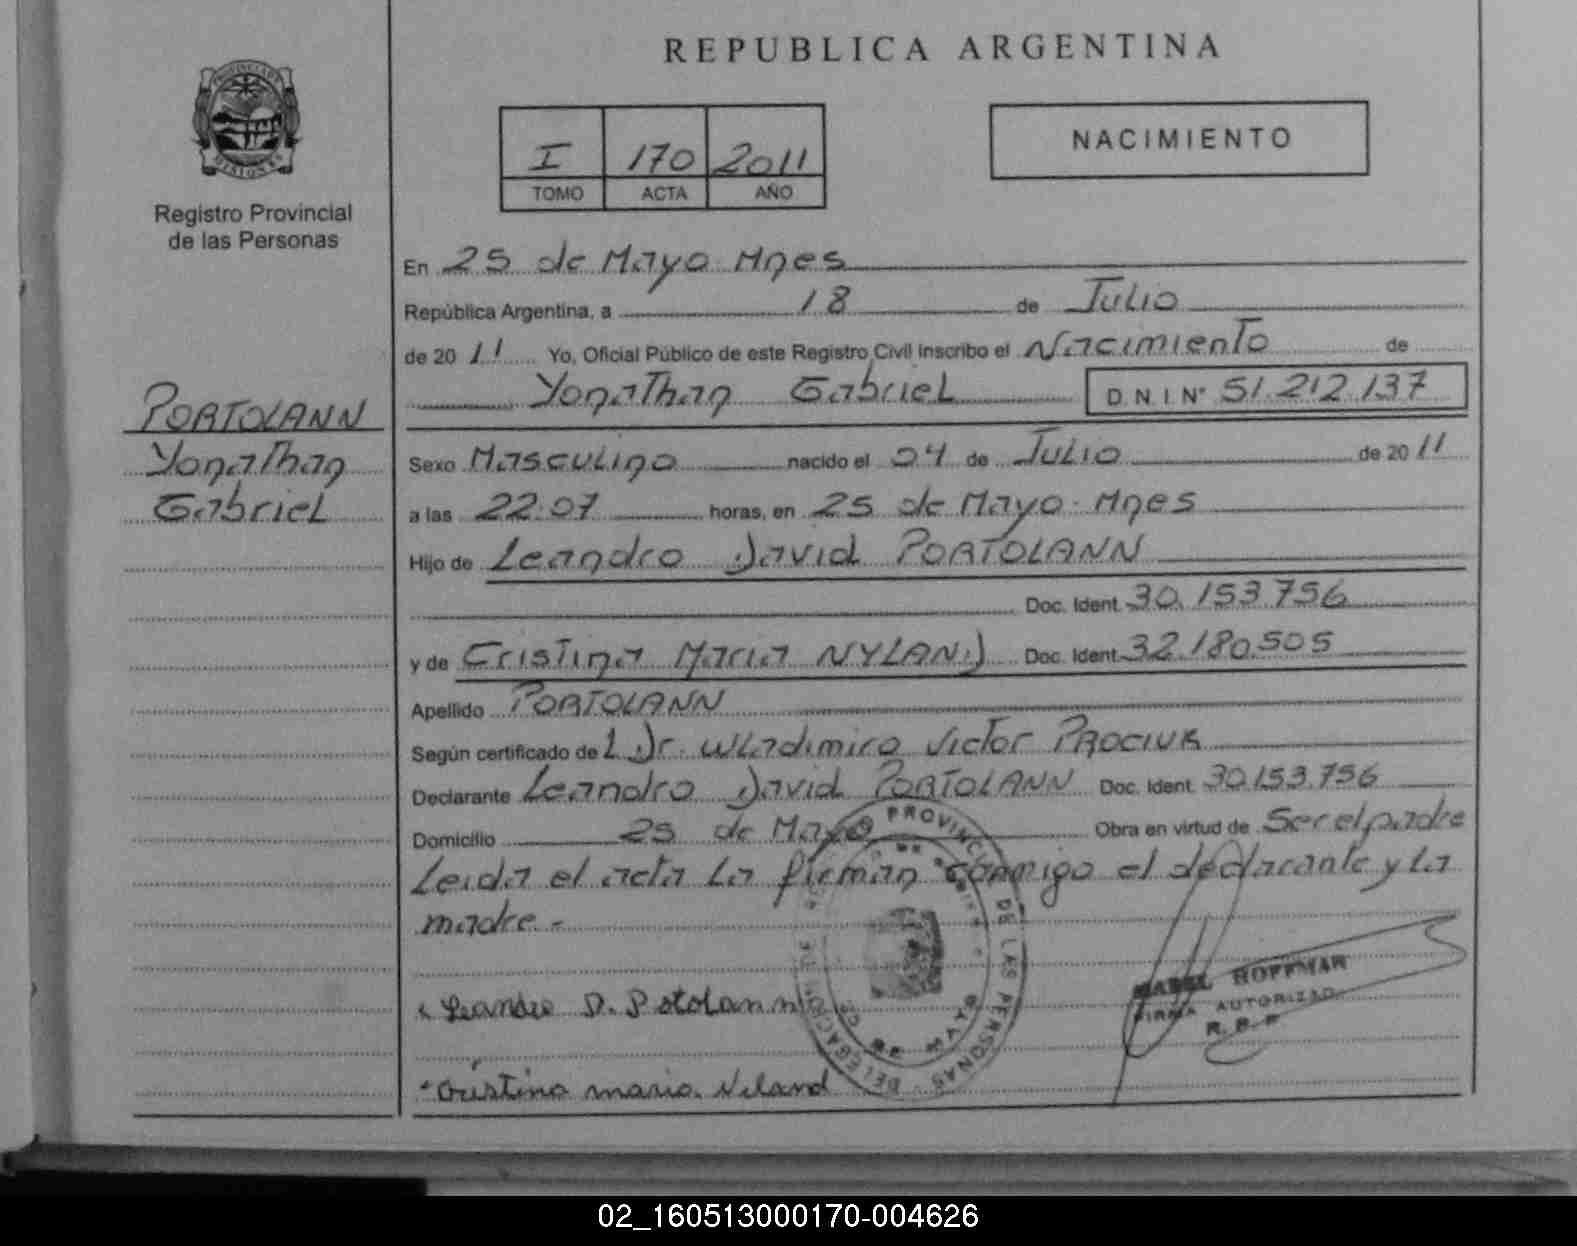 REPUBLICA ARGENTINA
PROVINCIA DE MISIONES
Registro Provincial
de las Personas
I 170 2011
TOMO ACTA AÑO
NACIMIENTO
PORTOLANN
Yonathan
Gabriel
En 25 de Mayo Mnes
República Argentina, a 18 de Julio
de 2011 Yo, Oficial Público de este Registro Civil inscribo el Nacimiento de
Yonathan Gabriel D.N.I. N° 51.212.137
Sexo Masculino nacido el 04 de Julio de 2011
a las 22:07 horas, en 25 de Mayo. Mnes
Hijo de Leandro David PORTOLANN
Doc. Ident. 30.153.756
y de Cristina Maria NYLAND Doc. Ident. 32.180.505
Apellido PORTOLANN
Según certificado de L Dr. Wladimiro Victor PROCIUK
Declarante Leandro David PORTOLANN Doc. Ident. 30.153.756
Domicilio 25 de Mayo Obra en virtud de Ser el padre
Leida el acta La firman conmigo el declarante y La
madre.-
PROVINCIAL DE LAS PERSONAS DELEGACION
25 DE MAYO
Leandro D. Potolann
MABEL HOFFMAN
FIRMA AUTORIZAD
R. P. P.
Cristina maria. Neland
02_160513000170-004626